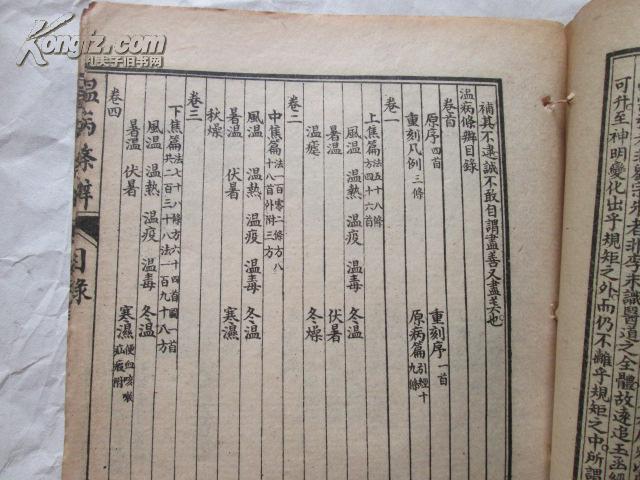 可升至神明變化出乎規矩之外而仍不離乎規矩之中所謂
識醫道之全體故遠追玉函經
補其不逮誠不敢自謂盡善又盡美也
溫病條辨目錄
卷首
原序四首 重刻序一首
重刻凡例三條 原病篇引經十九條
卷一
上焦篇法五十八條方四十六首
風溫 溫熱 溫疫 溫毒 冬溫
暑溫 伏暑
溫瘧 冬燥
卷二
中焦篇法一百零二條方八十八首外附三方
風溫 溫熱 溫疫 溫毒 冬溫
暑溫 伏暑 寒濕
秋燥
卷三
下焦篇法七十八條方六十四首圖一首共二百三十八法一百九十八方
風溫 溫熱 溫疫 溫毒 冬溫
暑溫 伏暑 寒濕便血咳嗽疝瘕附
卷四
溫病條辨 目錄
Kongfz.com
孔夫子旧书网